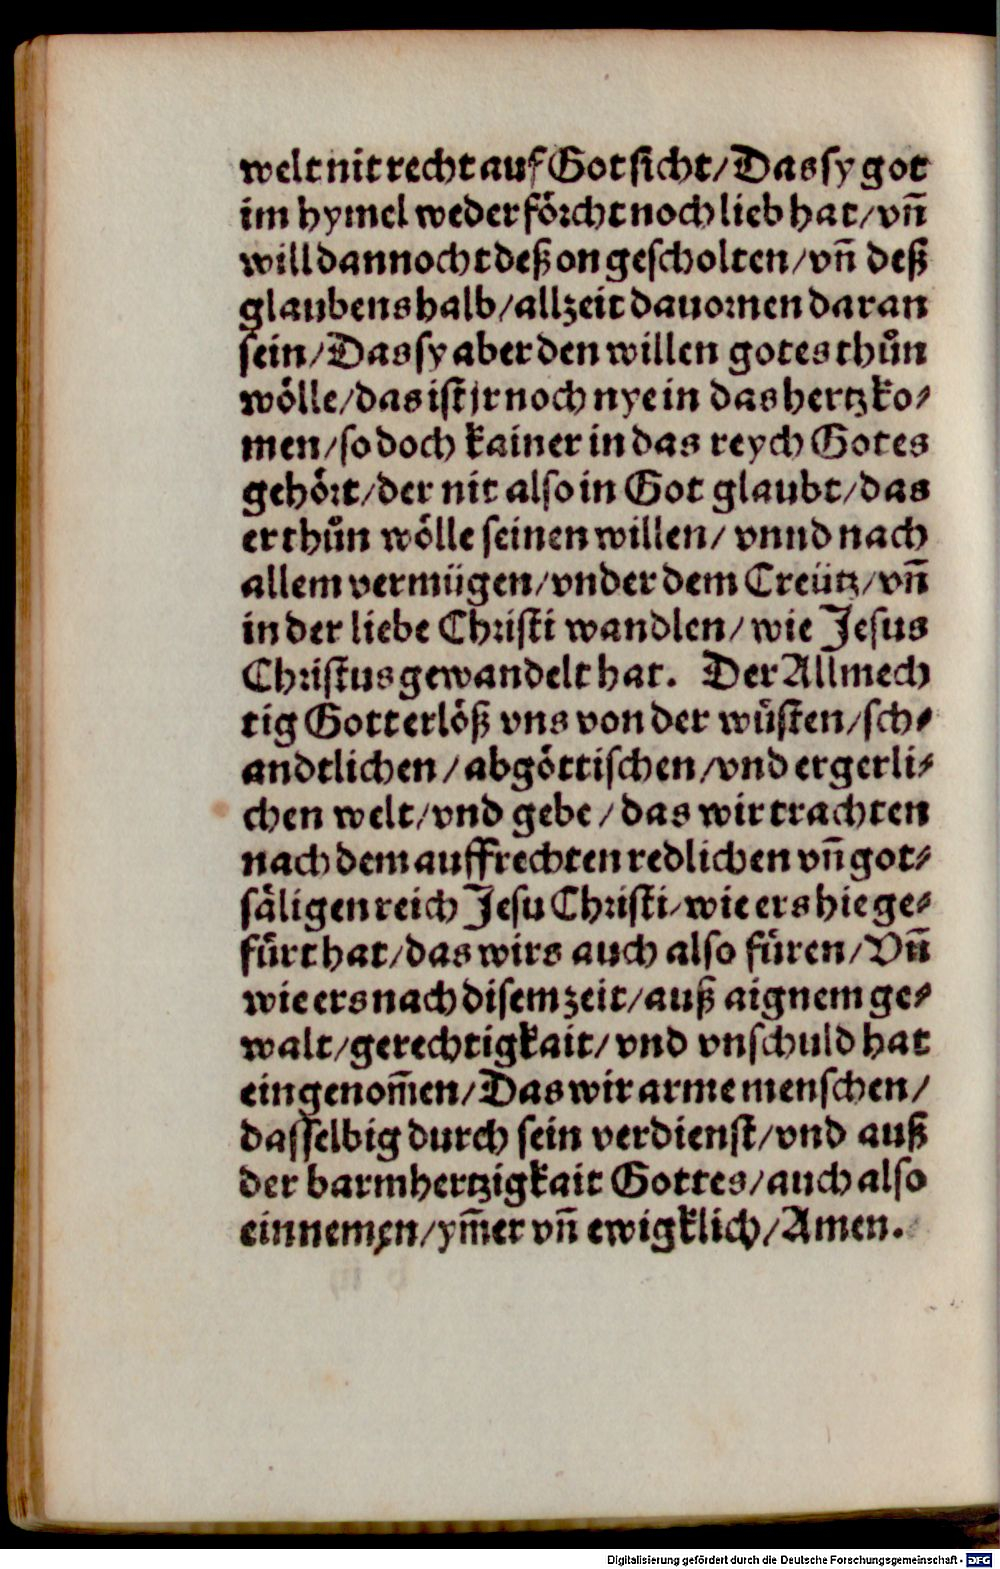 welt nit recht auf Got sicht/ Das sy got
im hymel weder förcht noch lieb hat/ vn̄
will dannocht deß on gescholten/ vn̄ deß
glaubens halb/ allzeit dauornen daran
sein/ Das sy aber den willen gotes thůn
wölle/ das ist jr noch nye in das hertz ko⸗
men/ so doch kainer in das reych Gotes
gehört/ der nit also in Got glaubt/ das
er thůn wölle seinen willen/ vnnd nach
allem vermügen/ vnder dem Creütz/ vn̄
in der liebe Christi wandlen/ wie Jesus
Christus gewandelt hat. Der Allmech
tig Gott erlöß vns von der wůsten/ sch⸗
andtlichen/ abgöttischen/ vnd ergerli⸗
chen welt/ vnd gebe/ das wir trachten
nach dem auffrechten redlichen vn̄ got⸗
säligen reich Jesu Christi/ wie ers hie ge⸗
fürt hat/ das wirs auch also füren/ Vn̄
wie ers nach disem zeit/ auß aignem ge⸗
walt/ gerechtigkait/ vnd vnschuld hat
eingenom̄en/ Das wir arme menschen/
dasselbig durch sein verdienst/ vnd auß
der barmhertzigkait Gottes/ auch also
einnemen/ ym̄er vn̄ ewigklich/ Amen.
Digitalisierung gefördert durch die Deutsche Forschungsgemeinschaft - DFG